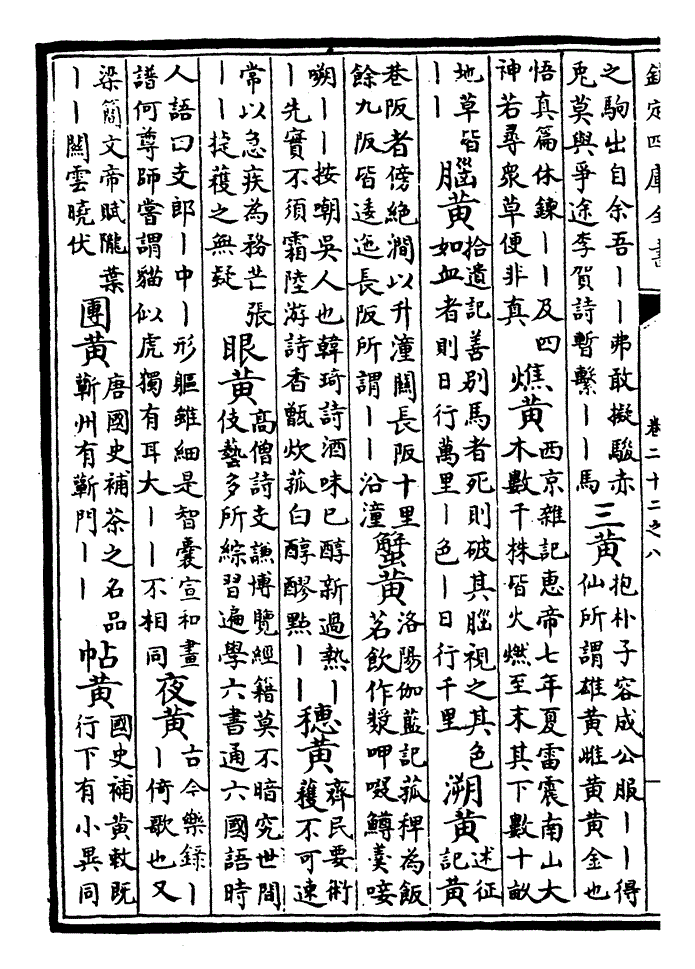 欽定四庫全書
卷二十二之八
之駒出自余吾丨丨弗敢擬駿赤
兎莫與爭途李賀詩暫繫丨丨馬
三黃
抱朴子容成公服丨丨得
仙所謂雄黃雌黃黃金也
悟真篇休鍊丨丨及四
神若尋衆草便非真
燋黃
西京雜記惠帝七年夏雷震南山大
木數千株皆火燃至末其下數十畝
地草皆
丨丨
腦黃
拾遺記善別馬者死則破其腦視之其色
如血者則日行萬里丨色丨日行千里
溯黃
述征
記黃
巷阪者傍絕澗以升潼關長阪十里
餘九阪皆逶迤長阪所謂丨丨沿潼
蟹黃
洛陽伽藍記菰稗為飯
茗飲作漿呷啜鱒羹唼
嗍丨丨按嘲吳人也韓琦詩酒味已醇新過熱丨
丨先實不須霜陸游詩香甑炊菰白醇醪點丨丨
穗黃
齊民要術
穫不可速
常以急疾為務芒張
丨丨捉穫之無疑
眼黃
高僧詩支謙博覽經籍莫不暗究世間
伎藝多所綜習遍學六書通六國語時
人語曰支郎丨中丨形軀雖細是智囊宣和畫
譜何尊師嘗謂貓似虎獨有耳大丨丨不相同
夜黃
古今樂錄丨
丨倚歌也又
梁簡文帝賦隴葉
丨丨關雲曉伏
團黃
唐國史補茶之名品
蘄州有蘄門丨丨
帖黃
國史補黃敕既
行下有小異同